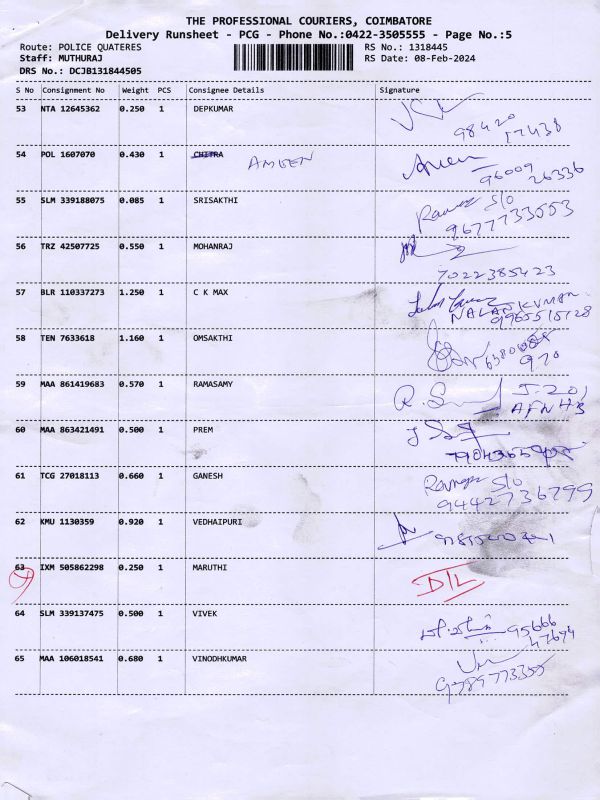 THE PROFESSIONAL COURIERS, COIMBATORE
Delivery Runsheet - PCG - Phone No.:0422-3505555 - Page No.:5
Route: POLICE QUATERES RS No.: 1318445
Staff: MUTHURAJ RS Date: 08-Feb-2024
DRS No.: DCJB131844505
S No Consignment No Weight PCS Consignee Details Signature
53 NTA 12645362 0.250 1 DEPKUMAR
98420
17438
54 POL 1607070 0.430 1 CHITRA AMEEN
96009
26336
55 SLM 339188075 0.085 1 SRISAKTHI S/O
9677733553
56 TRZ 42507725 0.550 1 MOHANRAJ
7022385423
57 BLR 110337273 1.250 1 C K MAX
NALAN KUMAR
9965515128
58 TEN 7633618 1.160 1 OMSAKTHI
970
59 MAA 861419683 0.570 1 RAMASAMY J-201
AFNHB
60 MAA 863421491 0.500 1 PREM
61 TCG 27018113 0.660 1 GANESH S/O
9442736799
62 KMU 1130359 0.920 1 VEDHAIPURI
63 IXM 505862298 0.250 1 MARUTHI D/L
64 SLM 339137475 0.500 1 VIVEK 95666
47694
65 MAA 106018541 0.680 1 VINODHKUMAR
9789773355